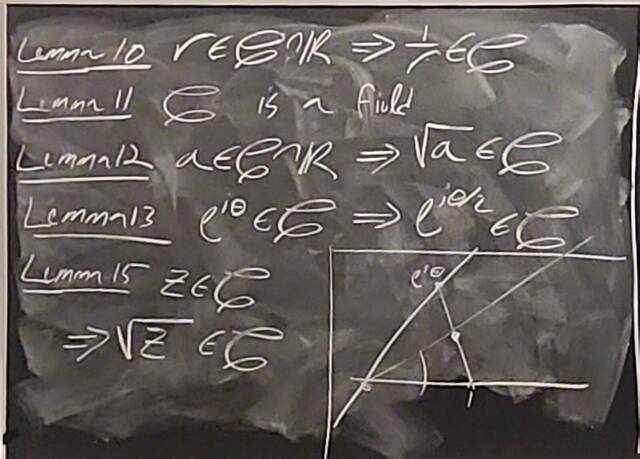 Lemma 10 r ∈ 𝒞 ∩ ℝ ⇒ 1/r ∈ 𝒞
Lemma 11 𝒞 is a field
Lemma 12 a ∈ 𝒞 ∩ ℝ ⇒ √a ∈ 𝒞
Lemma 13 e^{iθ} ∈ 𝒞 ⇒ e^{iθ/2} ∈ 𝒞
Lemma 15 z ∈ 𝒞
⇒ √z ∈ 𝒞
e^{iθ}
0 1